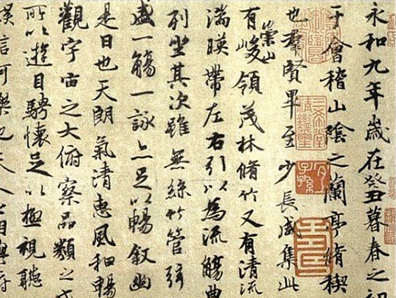 永和九年歲在癸丑暮春之初
于會稽山陰之蘭亭脩禊
也羣賢畢至少長咸集此
有崇山峻領茂林脩竹又有清流
湍暎帶左右引以為流觴曲
列坐其次雖無絲竹管弦
盛一觴一詠亦足以暢敘幽
是日也天朗氣清惠風和暢
觀宇宙之大俯察品類之
所以遊目騁懷足以極視聽
娛信可樂也夫人之相與俯